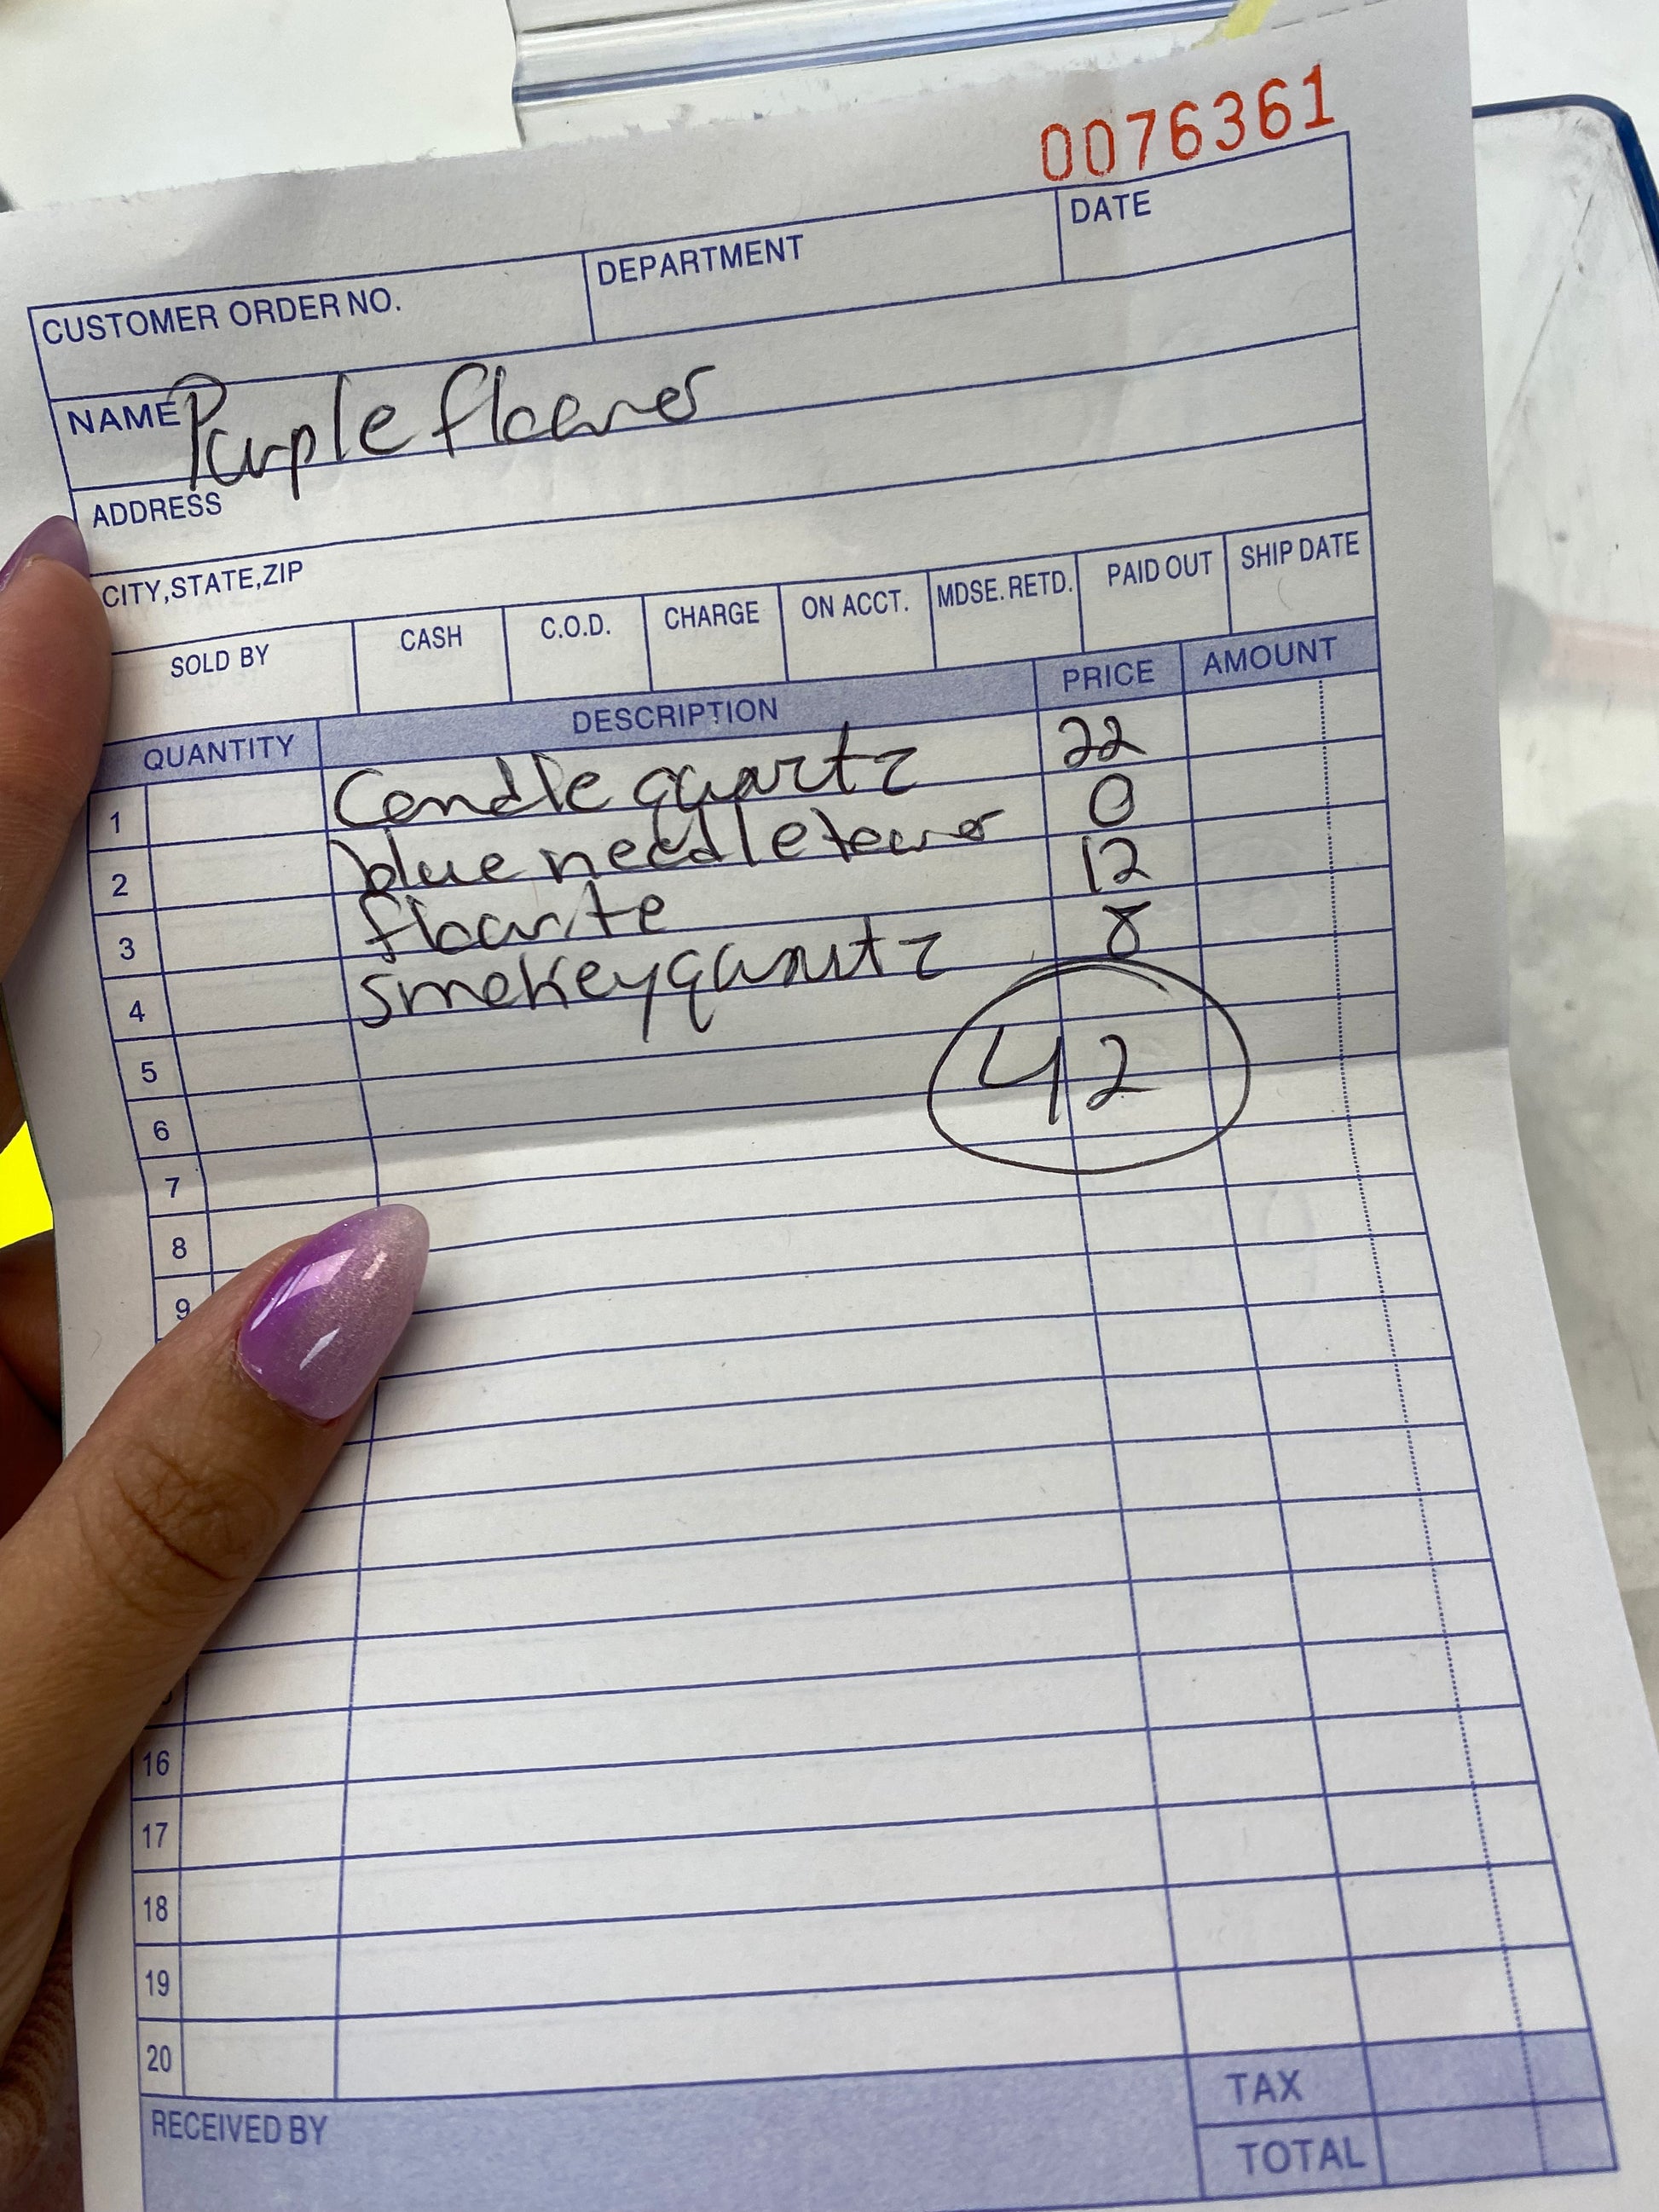 0076361
CUSTOMER ORDER NO. DEPARTMENT DATE
NAME Purple flower
ADDRESS
CITY,STATE,ZIP
SOLD BY CASH C.O.D. CHARGE ON ACCT. MDSE. RETD. PAID OUT SHIP DATE
QUANTITY DESCRIPTION PRICE AMOUNT
1 Candle quartz 22
2 blue needle tower 0
3 flourite 12
4 smokey quartz 8
5
42
6
7
8
9
16
17
18
19
20
RECEIVED BY TAX
TOTAL